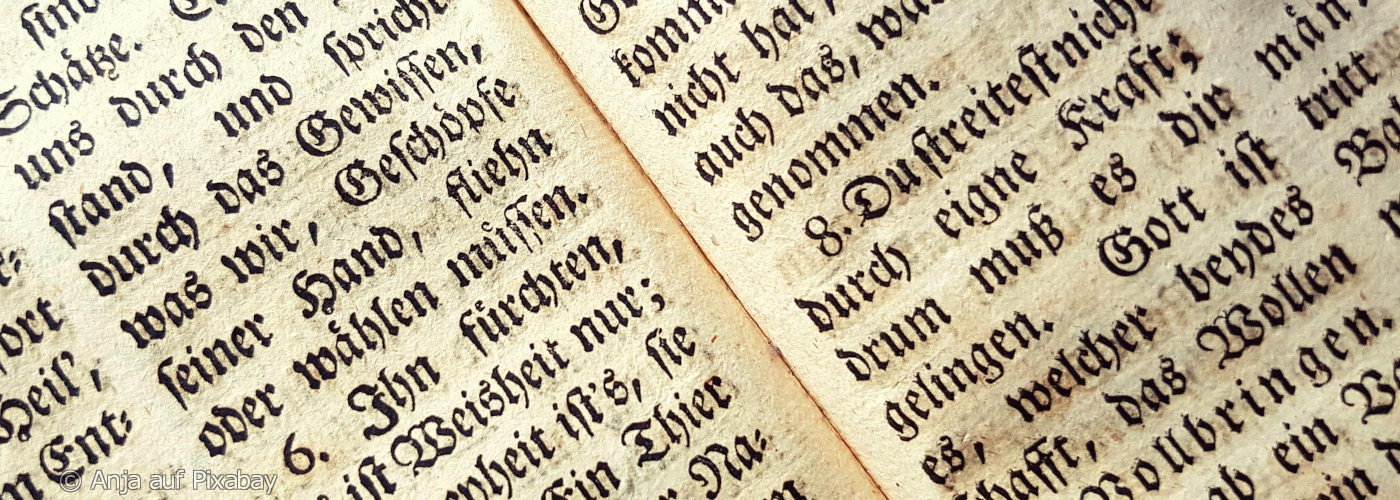 sind
Schätze.
uns durch den
stand, und spricht
durch das Gewissen,
was wir, Geschöpfe
seiner Hand, fliehn
oder wählen müssen.
6. Ihn fürchten,
ist Weisheit nur;
ist's, sie
Ein Thier
Na-
ort
Heil';
Ent-
komm
nicht hat
auch das, was
genommen.
8. Du streitest nicht
durch eigne Kraft;
drum muß es dir
gelingen. Gott ist
es, welcher beydes
schafft, das Wollen
Vollbringen.
ein
tritt
© Anja auf Pixabay